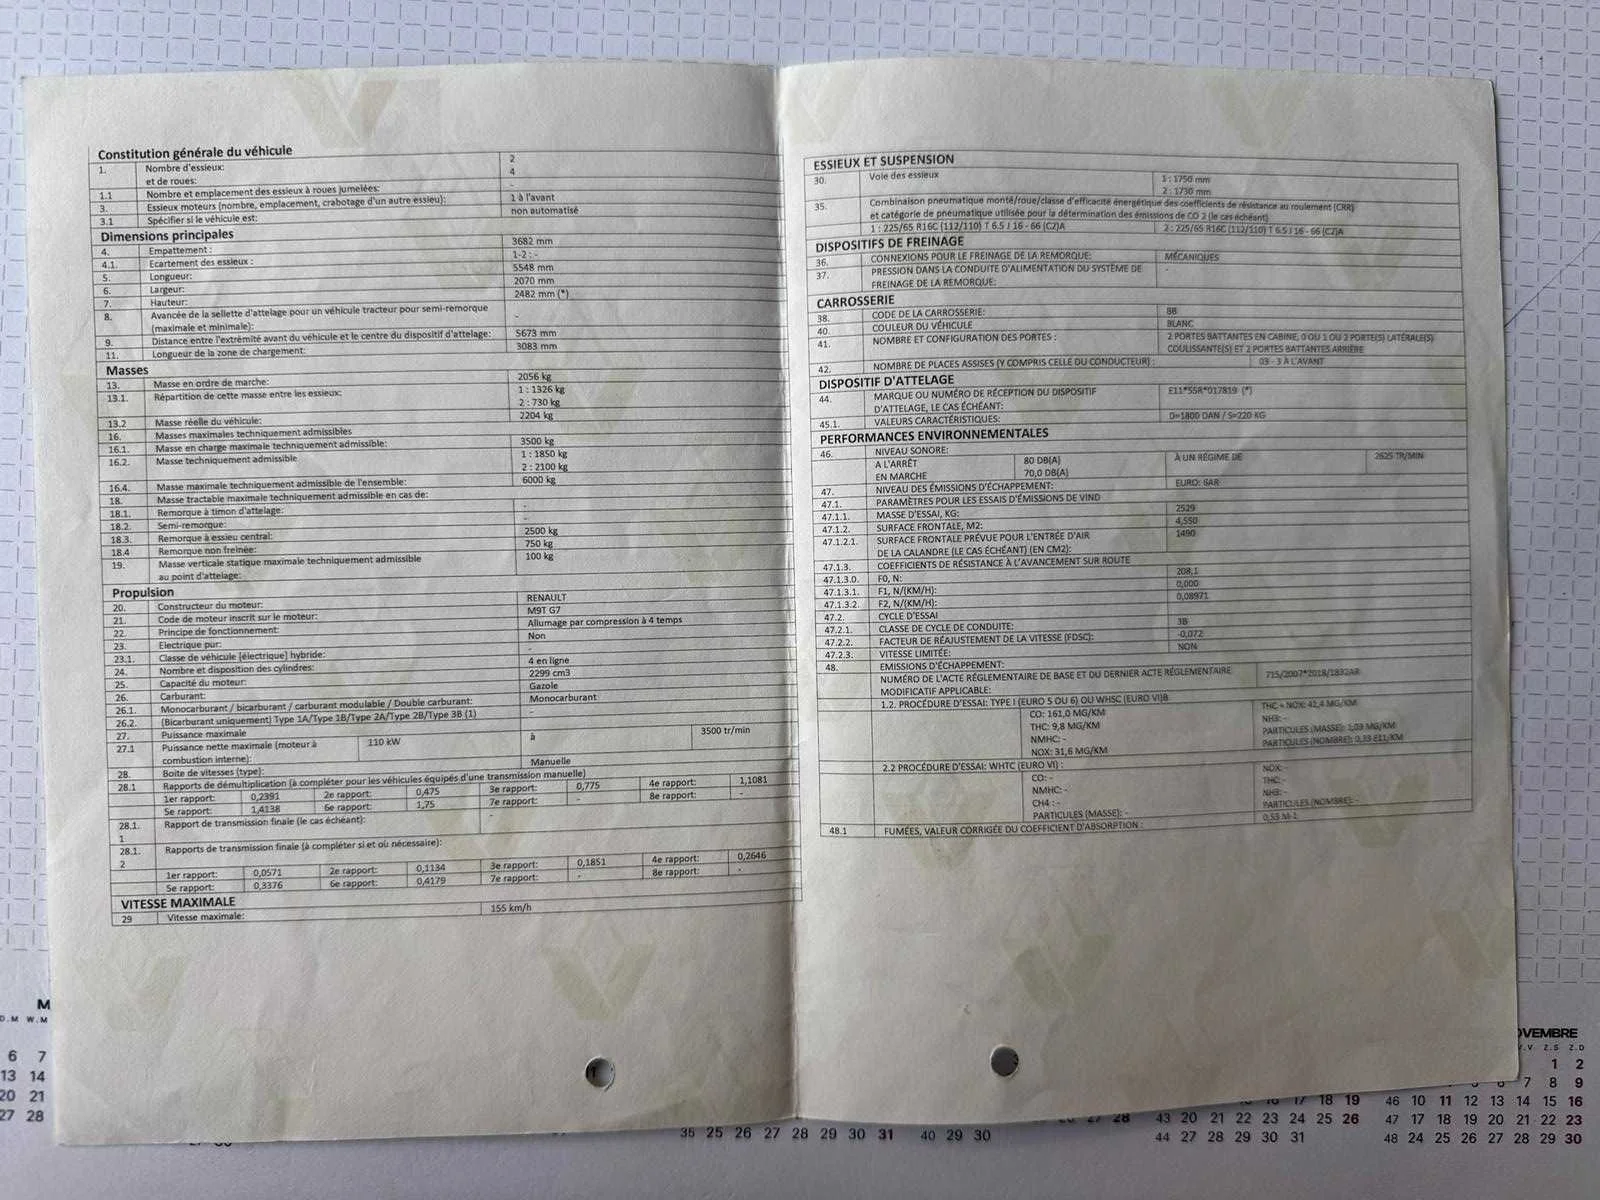 Constitution générale du véhicule
1. Nombre d'essieux: 2
et de roues: 4
1.1 Nombre et emplacement des essieux à roues jumelées: -
3. Essieux moteurs (nombre, emplacement, crabotage d'un autre essieu): 1 à l'avant
3.1 Spécifier si le véhicule est: non automatisé
Dimensions principales
4. Empattement : 3682 mm
4.1. Ecartement des essieux : 1-2 : -
5. Longueur: 5548 mm
6. Largeur: 2070 mm
7. Hauteur: 2482 mm (*)
8. Avancée de la sellette d'attelage pour un véhicule tracteur pour semi-remorque -
(maximale et minimale):
9. Distance entre l'extrémité avant du véhicule et le centre du dispositif d'attelage: 5673 mm
11. Longueur de la zone de chargement: 3083 mm
Masses
13. Masse en ordre de marche: 2056 kg
13.1. Répartition de cette masse entre les essieux: 1 : 1326 kg
2 : 730 kg
13.2 Masse réelle du véhicule: 2204 kg
16. Masses maximales techniquement admissibles
16.1. Masse en charge maximale techniquement admissible: 3500 kg
16.2. Masse techniquement admissible 1 : 1850 kg
2 : 2100 kg
16.4. Masse maximale techniquement admissible de l'ensemble: 6000 kg
18. Masse tractable maximale techniquement admissible en cas de:
18.1. Remorque à timon d'attelage: -
18.2. Semi-remorque: -
18.3. Remorque à essieu central: 2500 kg
18.4 Remorque non freinée: 750 kg
19. Masse verticale statique maximale techniquement admissible 100 kg
au point d'attelage:
Propulsion
20. Constructeur du moteur: RENAULT
21. Code de moteur inscrit sur le moteur: M9T G7
22. Principe de fonctionnement: Allumage par compression à 4 temps
23. Electrique pur: Non
23.1. Classe de véhicule [électrique] hybride: -
24. Nombre et disposition des cylindres: 4 en ligne
25. Capacité du moteur: 2299 cm3
26. Carburant: Gazole
26.1. Monocarburant / bicarburant / carburant modulable / Double carburant: Monocarburant
26.2. (Bicarburant uniquement) Type 1A/Type 1B/Type 2A/Type 2B/Type 3B (1) -
27. Puissance maximale
27.1 Puissance nette maximale (moteur à 110 kW à 3500 tr/min
combustion interne):
28. Boite de vitesses (type): Manuelle
28.1 Rapports de démultiplication (à compléter pour les véhicules équipés d'une transmission manuelle)
1er rapport: 0,2391 2e rapport: 0,475 3e rapport: 0,775 4e rapport: 1,1081
5e rapport: 1,4138 6e rapport: 1,75 7e rapport: - 8e rapport: -
28.1. Rapport de transmission finale (le cas échéant): -
1
28.1. Rapports de transmission finale (à compléter si et où nécessaire):
2
1er rapport: 0,0571 2e rapport: 0,1134 3e rapport: 0,1851 4e rapport: 0,2646
5e rapport: 0,3376 6e rapport: 0,4179 7e rapport: - 8e rapport: -
VITESSE MAXIMALE
29 Vitesse maximale: 155 km/h
ESSIEUX ET SUSPENSION
30. Voie des essieux 1 : 1750 mm
2 : 1730 mm
35. Combinaison pneumatique monté/roue/classe d'efficacité énergétique des coefficients de résistance au roulement (CRR)
et catégorie de pneumatique utilisée pour la détermination des émissions de CO 2 (le cas échéant)
1 : 225/65 R16C (112/110) T 6.5 J 16 - 66 (C2)A 2 : 225/65 R16C (112/110) T 6.5 J 16 - 66 (C2)A
DISPOSITIFS DE FREINAGE
36. CONNEXIONS POUR LE FREINAGE DE LA REMORQUE: MÉCANIQUES
37. PRESSION DANS LA CONDUITE D'ALIMENTATION DU SYSTÈME DE -
FREINAGE DE LA REMORQUE:
CARROSSERIE
38. CODE DE LA CARROSSERIE: BB
40. COULEUR DU VÉHICULE BLANC
41. NOMBRE ET CONFIGURATION DES PORTES : 2 PORTES BATTANTES EN CABINE, 0 OU 1 OU 2 PORTE(S) LATÉRALE(S)
COULISSANTE(S) ET 2 PORTES BATTANTES ARRIÈRE
42. NOMBRE DE PLACES ASSISES (Y COMPRIS CELLE DU CONDUCTEUR) : 03 - 3 À L'AVANT
DISPOSITIF D'ATTELAGE
44. MARQUE OU NUMÉRO DE RÉCEPTION DU DISPOSITIF E11*55R*017819 (*)
D'ATTELAGE, LE CAS ÉCHÉANT:
45.1. VALEURS CARACTÉRISTIQUES: D=1800 DAN / S=220 KG
PERFORMANCES ENVIRONNEMENTALES
46. NIVEAU SONORE:
A L'ARRÊT 80 DB(A) À UN RÉGIME DE 2625 TR/MIN
EN MARCHE 70,0 DB(A)
47. NIVEAU DES ÉMISSIONS D'ÉCHAPPEMENT: EURO: 6AR
47.1. PARAMÈTRES POUR LES ESSAIS D'ÉMISSIONS DE VIND
47.1.1. MASSE D'ESSAI, KG: 2529
47.1.2. SURFACE FRONTALE, M2: 4,550
47.1.2.1. SURFACE FRONTALE PRÉVUE POUR L'ENTRÉE D'AIR 1490
DE LA CALANDRE (LE CAS ÉCHÉANT) (EN CM2):
47.1.3. COEFFICIENTS DE RÉSISTANCE À L'AVANCEMENT SUR ROUTE
47.1.3.0. F0, N: 208,1
47.1.3.1. F1, N/(KM/H): 0,000
47.1.3.2. F2, N/(KM/H): 0,08971
47.2. CYCLE D'ESSAI
47.2.1. CLASSE DE CYCLE DE CONDUITE: 3B
47.2.2. FACTEUR DE RÉAJUSTEMENT DE LA VITESSE (FDSC): -0,072
47.2.3. VITESSE LIMITÉE: NON
48. EMISSIONS D'ÉCHAPPEMENT:
NUMÉRO DE L'ACTE RÉGLEMENTAIRE DE BASE ET DU DERNIER ACTE RÉGLEMENTAIRE 715/2007*2018/1832AR
MODIFICATIF APPLICABLE:
1.2. PROCÉDURE D'ESSAI: TYPE I (EURO 5 OU 6) OU WHSC (EURO VI)B
CO: 161,0 MG/KM THC + NOX: 41,4 MG/KM
THC: 9,8 MG/KM NH3: -
NMHC: - PARTICULES (MASSE): 1,03 MG/KM
NOX: 31,6 MG/KM PARTICULES (NOMBRE): 0,33 E11/KM
2.2 PROCÉDURE D'ESSAI: WHTC (EURO VI) :
CO: - NOX:
NMHC: - THC: -
CH4 : - NH3: -
PARTICULES (MASSE): - PARTICULES (NOMBRE): -
48.1 FUMÉES, VALEUR CORRIGÉE DU COEFFICIENT D'ABSORPTION : 0,53 M-1
M
D.M W.M
6 7
13 14
20 21
27 28
35 25 26 27 28 29 30 31
40 29 30
27 28
43 20 21 22 23 24 25 26
44 27 28 29 30 31
17 18 19
OVEMBRE
V.V Z.S Z.D
1 2
7 8 9
46 10 11 12 13 14 15 16
47 17 18 19 20 21 22 23
48 24 25 26 27 28 29 30